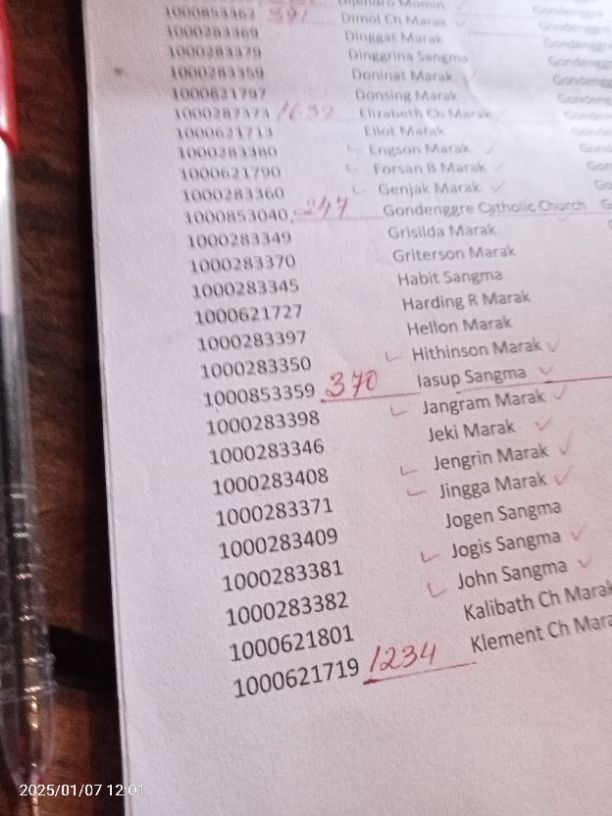 Momin
Dimol Ch Marak
1000283369 Dinggat Marak
1000283379 Dinggrina Sangma
1000283359 Doninat Marak
1000621797 Donsing Marak
1000287373 1632 Elizabeth Ch Marak
1000621713 Ellot Marak
1000283380 Engson Marak
1000621790 Forsan B Marak
1000283360 Genjak Marak
1000853040 247 Gondenggre Catholic Church G
1000283349 Grisilda Marak
1000283370 Griterson Marak
1000283345 Habit Sangma
1000621727 Harding R Marak
1000283397 Hellon Marak
1000283350 Hithinson Marak
1000853359 370 Iasup Sangma
1000283398 Jangram Marak
1000283346 Jeki Marak
1000283408 Jengrin Marak
1000283371 Jingga Marak
1000283409 Jogen Sangma
1000283381 Jogis Sangma
1000283382 John Sangma
1000621801 Kalibath Ch Marak
1000621719 1234 Klement Ch Mara
2025/01/07 12:01